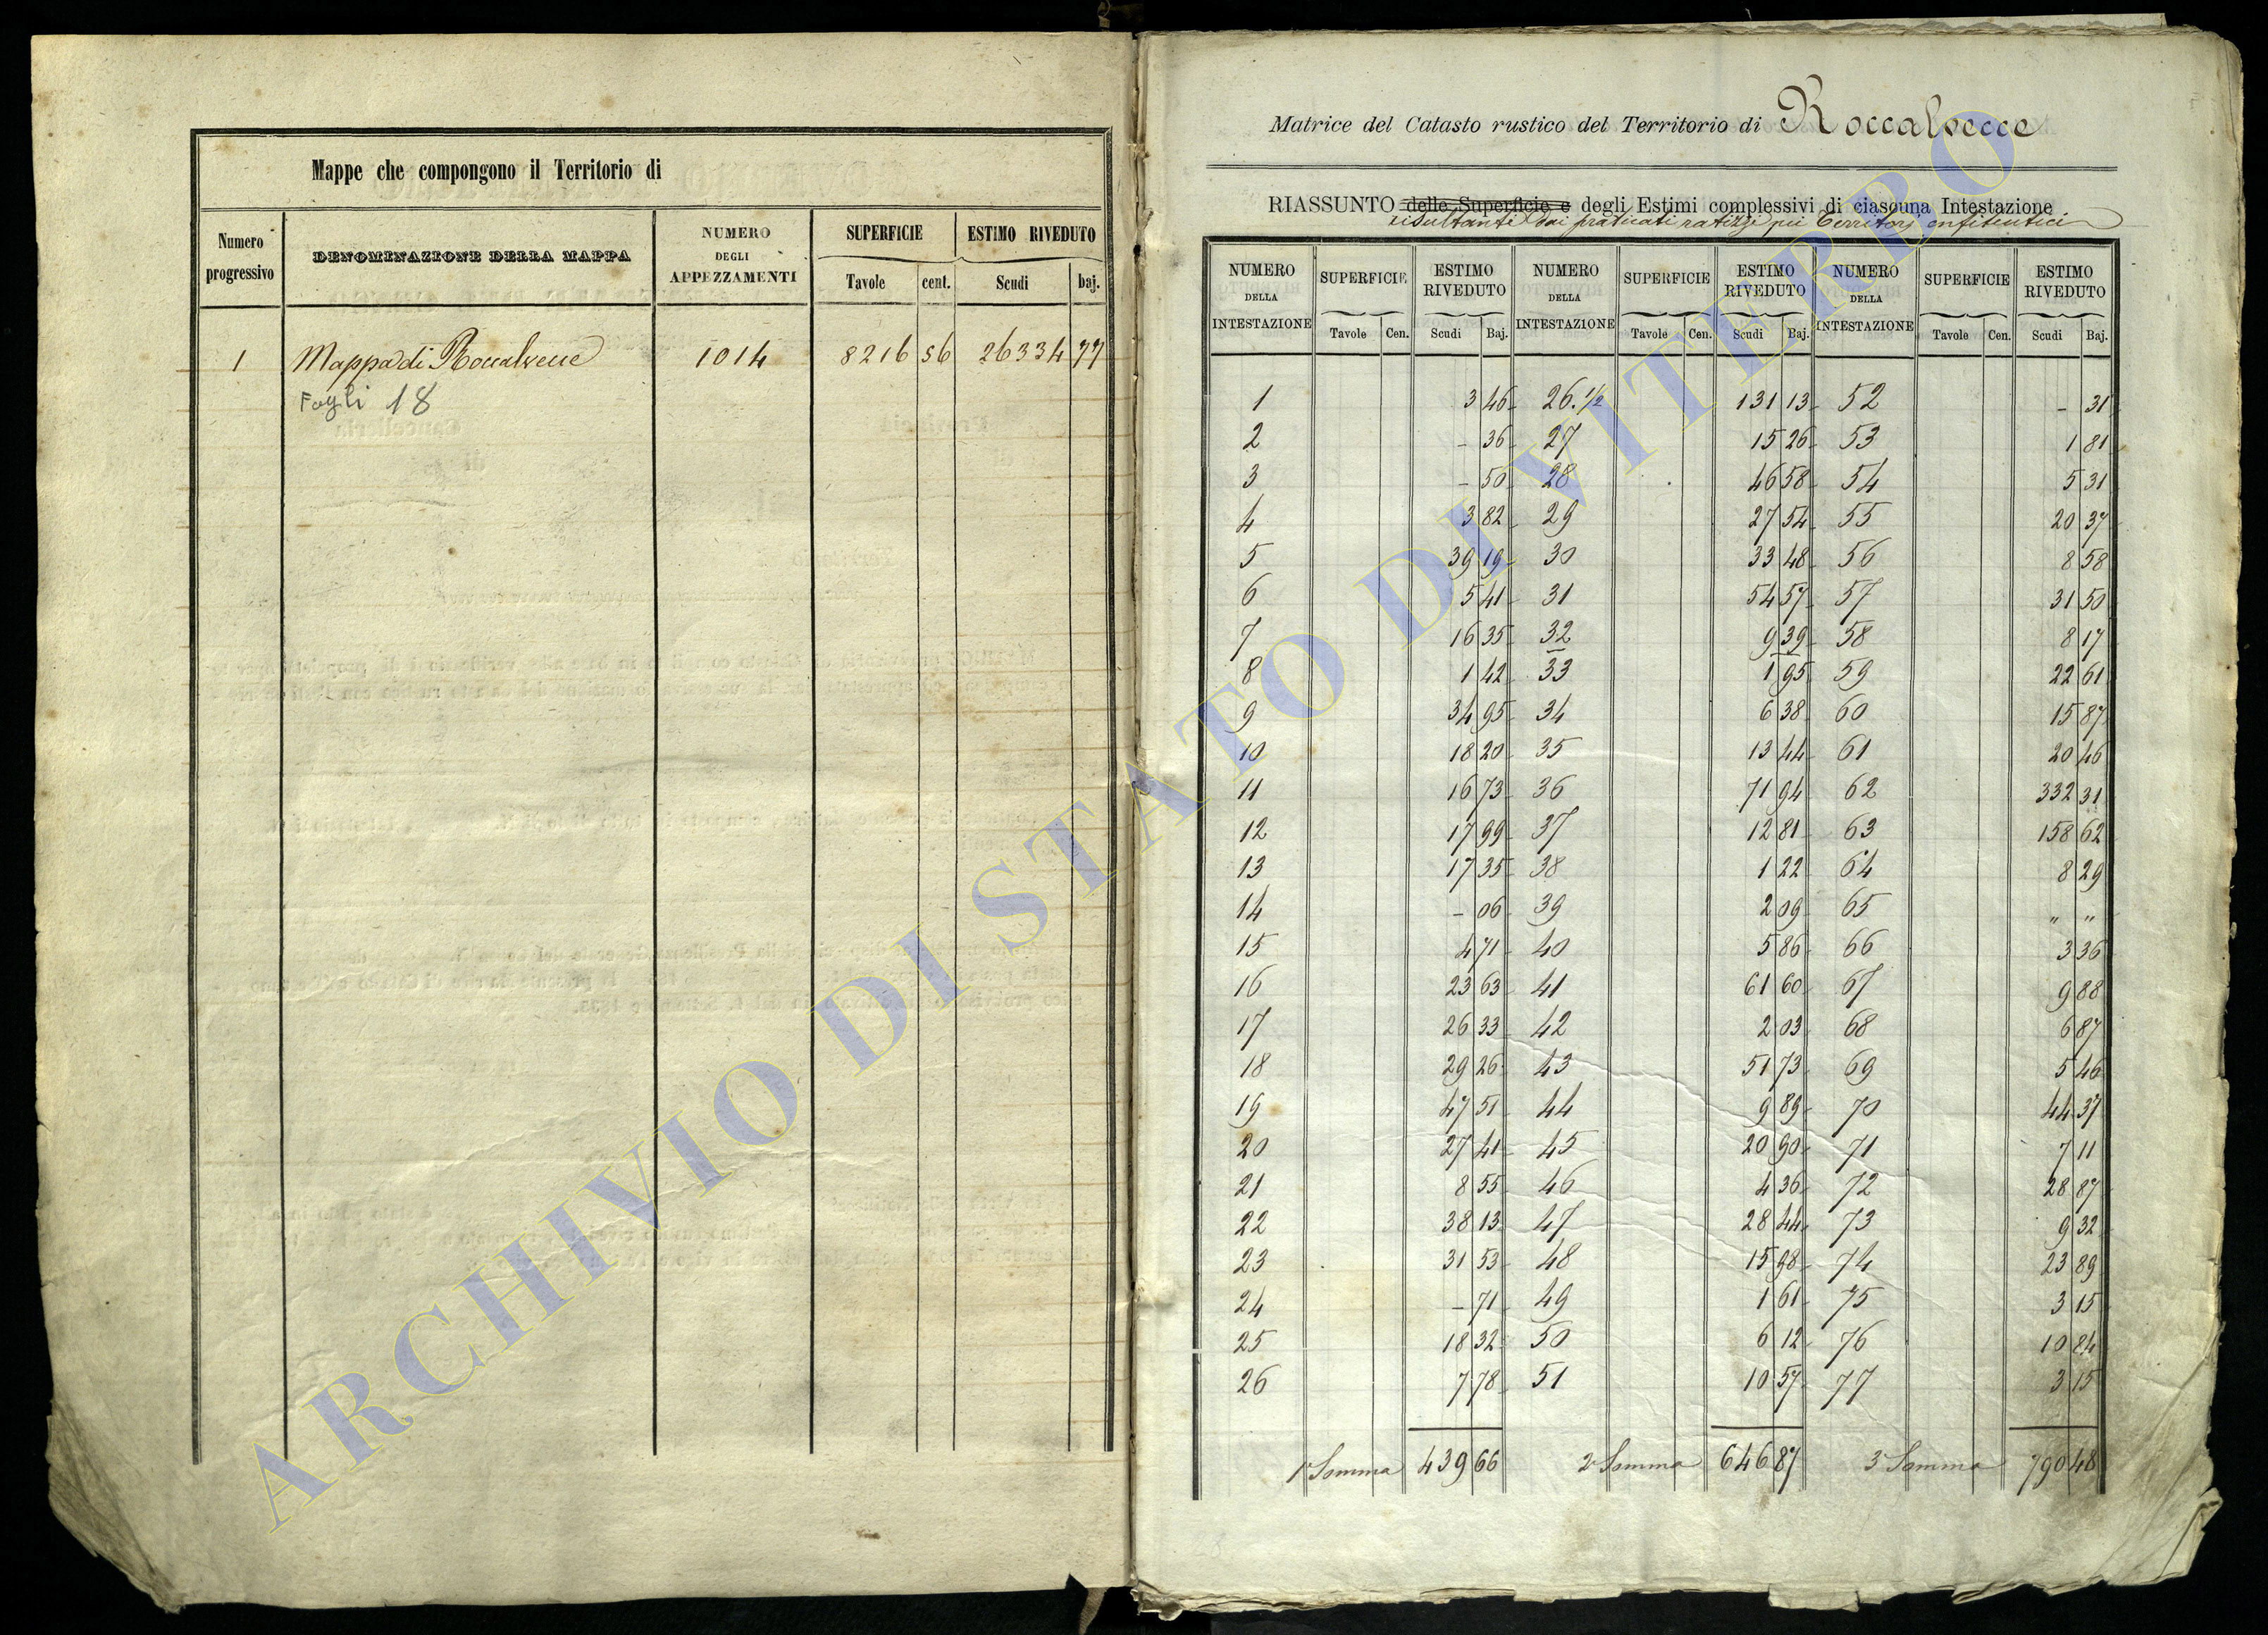 Mappe che compongono il Territorio di
Numero progressivo | DENOMINAZIONE DELLA MAPPA | NUMERO DEGLI APPEZZAMENTI | SUPERFICIE | ESTIMO RIVEDUTO
Tavole | cent. | Scudi | baj.
1 | Mappa di Roccalvecce | 1014 | 8216 | 56 | 26334 | 77
Fogli 18
Matrice del Catasto rustico del Territorio di Roccalvecce
RIASSUNTO delle Superficie e degli Estimi complessivi di ciascuna Intestazione
risultanti dai praticati ratizzi pei Territorj enfiteutici
NUMERO DELLA INTESTAZIONE | SUPERFICIE | ESTIMO RIVEDUTO | NUMERO DELLA INTESTAZIONE | SUPERFICIE | ESTIMO RIVEDUTO | NUMERO DELLA INTESTAZIONE | SUPERFICIE | ESTIMO RIVEDUTO
Tavole | Cen. | Scudi | Baj. | Tavole | Cen. | Scudi | Baj. | Tavole | Cen. | Scudi | Baj.
1 | 3 | 46 | 26.1/2 | 131 | 13 | 52 | – | 31
2 | – | 36 | 27 | 15 | 26 | 53 | 1 | 81
3 | – | 50 | 28 | 46 | 58 | 54 | 5 | 31
4 | 3 | 82 | 29 | 27 | 54 | 55 | 20 | 37
5 | 39 | 19 | 30 | 33 | 48 | 56 | 8 | 58
6 | 5 | 41 | 31 | 54 | 57 | 57 | 31 | 50
7 | 16 | 35 | 32 | 9 | 39 | 58 | 8 | 17
8 | 1 | 42 | 33 | 1 | 95 | 59 | 22 | 61
9 | 34 | 95 | 34 | 6 | 38 | 60 | 15 | 87
10 | 18 | 20 | 35 | 13 | 44 | 61 | 20 | 46
11 | 16 | 73 | 36 | 71 | 94 | 62 | 332 | 31
12 | 17 | 99 | 37 | 12 | 81 | 63 | 158 | 62
13 | 17 | 35 | 38 | 1 | 22 | 64 | 8 | 29
14 | – | 06 | 39 | 2 | 09 | 65 | " | "
15 | 4 | 71 | 40 | 5 | 86 | 66 | 3 | 36
16 | 23 | 63 | 41 | 61 | 60 | 67 | 9 | 88
17 | 26 | 33 | 42 | 2 | 03 | 68 | 6 | 87
18 | 29 | 26 | 43 | 51 | 73 | 69 | 5 | 46
19 | 47 | 51 | 44 | 9 | 89 | 70 | 44 | 37
20 | 27 | 41 | 45 | 20 | 90 | 71 | 7 | 11
21 | 8 | 55 | 46 | 4 | 36 | 72 | 28 | 87
22 | 38 | 13 | 47 | 28 | 44 | 73 | 9 | 32
23 | 31 | 53 | 48 | 15 | 98 | 74 | 23 | 89
24 | – | 71 | 49 | 1 | 61 | 75 | 3 | 15
25 | 18 | 32 | 50 | 6 | 12 | 76 | 10 | 84
26 | 7 | 78 | 51 | 10 | 57 | 77 | 3 | 15
1ª Somma | 439 | 66 | 2ª Somma | 646 | 87 | 3ª Somma | 790 | 48
ARCHIVIO DI STATO DI VITERBO